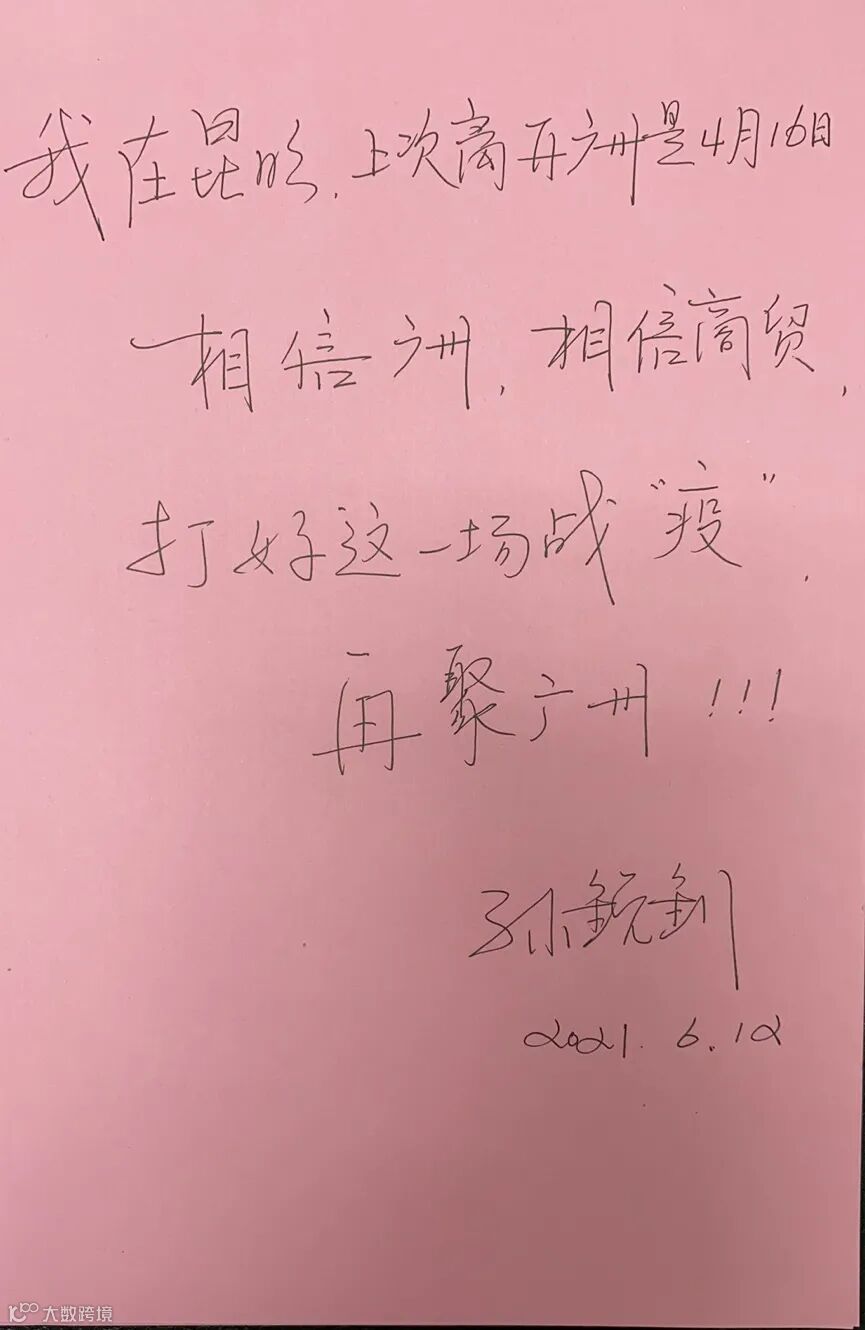 我在昆明,上次离开广州是4月16日
相信广州,相信商贸,
打好这一场战“疫”,
再聚广州!!!
孙锐钊
2021.6.12
10100 大数跨境